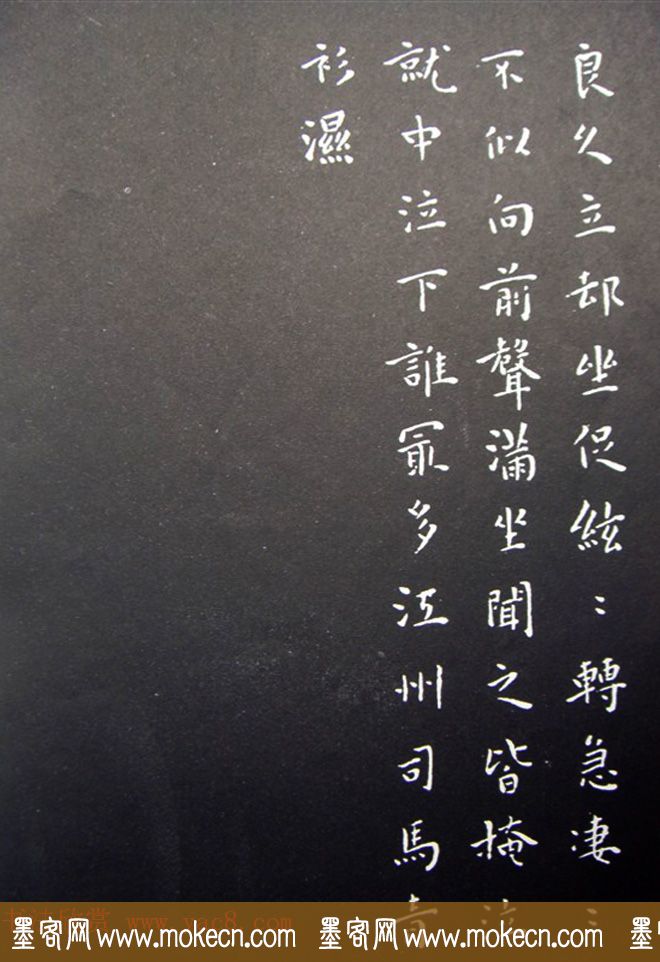 良久立却坐促絃〻轉急凄〻
不似向前聲滿坐聞之皆掩泣
就中泣下誰冣多江州司馬青
衫濕
书法欣赏 www.yac8.com
墨客网 www.mokecn.com 墨客网 www.mokecn.com 墨客网 www